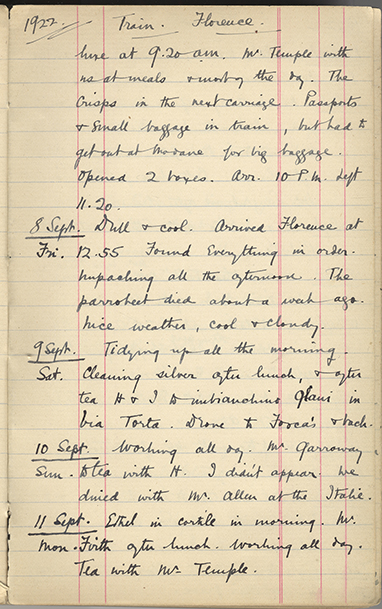 1922. Train. Florence.
here at 9.20 am. Mr Temple with
us at meals & most of the day. The
Crisps in the next carriage. Passports
& small baggage in train, but had to
get out at Modane for big baggage.
Opened 2 boxes. Arr. 10 P.M. dept
11.20.
8 Sept. Dull & cool. Arrived Florence at
Fri. 12.55 Found Everything in order.
Unpacking all the afternoon. The
parrokeet died about a week ago.
Nice weather, cool & cloudy.
9 Sept. Tidying up all the morning.
Sat. Cleaning silver after lunch, & after
tea H & I to imbianchino in
Via Torta. Drove to & back.
10 Sept. Working all day. Mr. Garroway
Sun. tea with H. I didn't appear. We
dined with Mr. Allen at the Italie.
11 Sept. Ethel in cortile in morning. Mr.
Mon. Firth after lunch. Working all day.
Tea with Mr Temple.